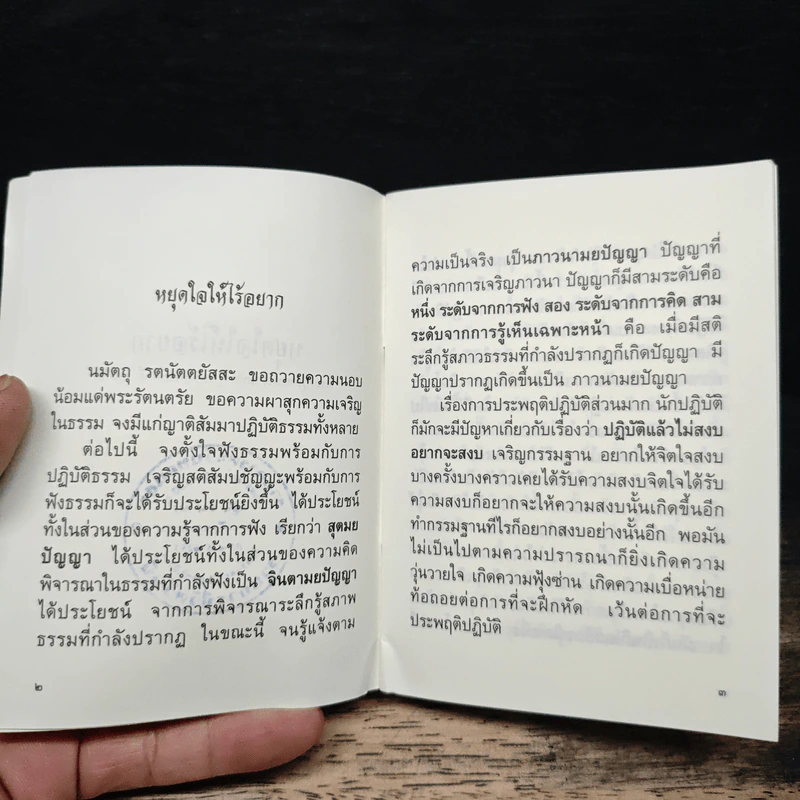 หยุดใจให้ไร้อยาก
นมัตถุ รตนัตตยัสสะ ขอถวายความนอบ
น้อมแด่พระรัตนตรัย ขอความผาสุกความเจริญ
ในธรรม จงมีแก่ญาติสัมมาปฏิบัติธรรมทั้งหลาย
ต่อไปนี้ จงตั้งใจฟังธรรมพร้อมกับการ
ปฏิบัติธรรม เจริญสติสัมปชัญญะพร้อมกับการ
ฟังธรรมก็จะได้รับประโยชน์ยิ่งขึ้น ได้ประโยชน์
ทั้งในส่วนของความรู้จากการฟัง เรียกว่า สุตมย
ปัญญา ได้ประโยชน์ทั้งในส่วนของความคิด
พิจารณาในธรรมที่กำลังฟังเป็น จินตามยปัญญา
ได้ประโยชน์ จากการพิจารณาระลึกรู้สภาพ
ธรรมที่กำลังปรากฏ ในขณะนี้ จนรู้แจ้งตาม
๒
ความเป็นจริง เป็นภาวนามยปัญญา ปัญญาที่
เกิดจากการเจริญภาวนา ปัญญาก็มีสามระดับคือ
หนึ่ง ระดับจากการฟัง สอง ระดับจากการคิด สาม
ระดับจากการรู้เห็นเฉพาะหน้า คือ เมื่อมีสติ
ระลึกรู้สภาวธรรมที่กำลังปรากฏก็เกิดปัญญา มี
ปัญญาปรากฏเกิดขึ้นเป็น ภาวนามยปัญญา
เรื่องการประพฤติปฏิบัติส่วนมาก นักปฏิบัติ
ก็มักจะมีปัญหาเกี่ยวกับเรื่องว่า ปฏิบัติแล้วไม่สงบ
อยากจะสงบ เจริญกรรมฐาน อยากให้จิตใจสงบ
บางครั้งบางคราวเคยได้รับความสงบจิตใจได้รับ
ความสงบก็อยากจะให้ความสงบนั้นเกิดขึ้นอีก
ทำกรรมฐานทีไรก็อยากสงบอย่างนั้นอีก พอมัน
ไม่เป็นไปตามความปรารถนาก็ยิ่งเกิดความ
วุ่นวายใจ เกิดความฟุ้งซ่าน เกิดความเบื่อหน่าย
ท้อถอยต่อการที่จะฝึกหัด เว้นต่อการที่จะ
ประพฤติปฏิบัติ
๓